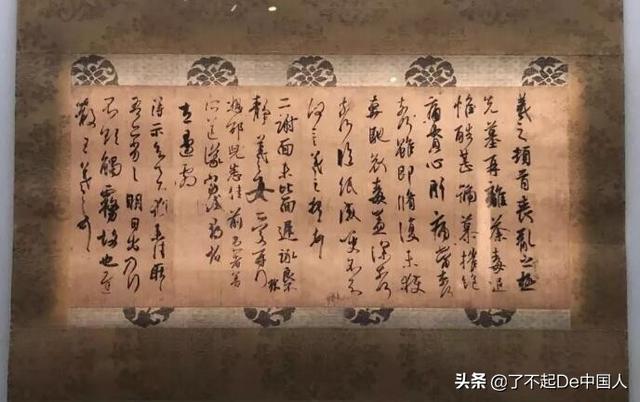 羲之頓首喪亂之極
先墓再離荼毒追
惟酷甚號慕摧絕
痛貫心肝痛當奈何
奈何雖即脩復未獲
奔馳哀毒益深奈何
奈何臨紙感哽不知
何言羲之頓首頓首
二謝面未比面遲詠良不
靜羲之女愛再拜
想邵兒悉佳前患者善
所送議當試尋省
左邊劇
得示知足下猶未佳耿耿
吾亦劣劣明日出乃行
不欲觸霧故也遲
散王羲之頓首
头条 @了不起De中国人